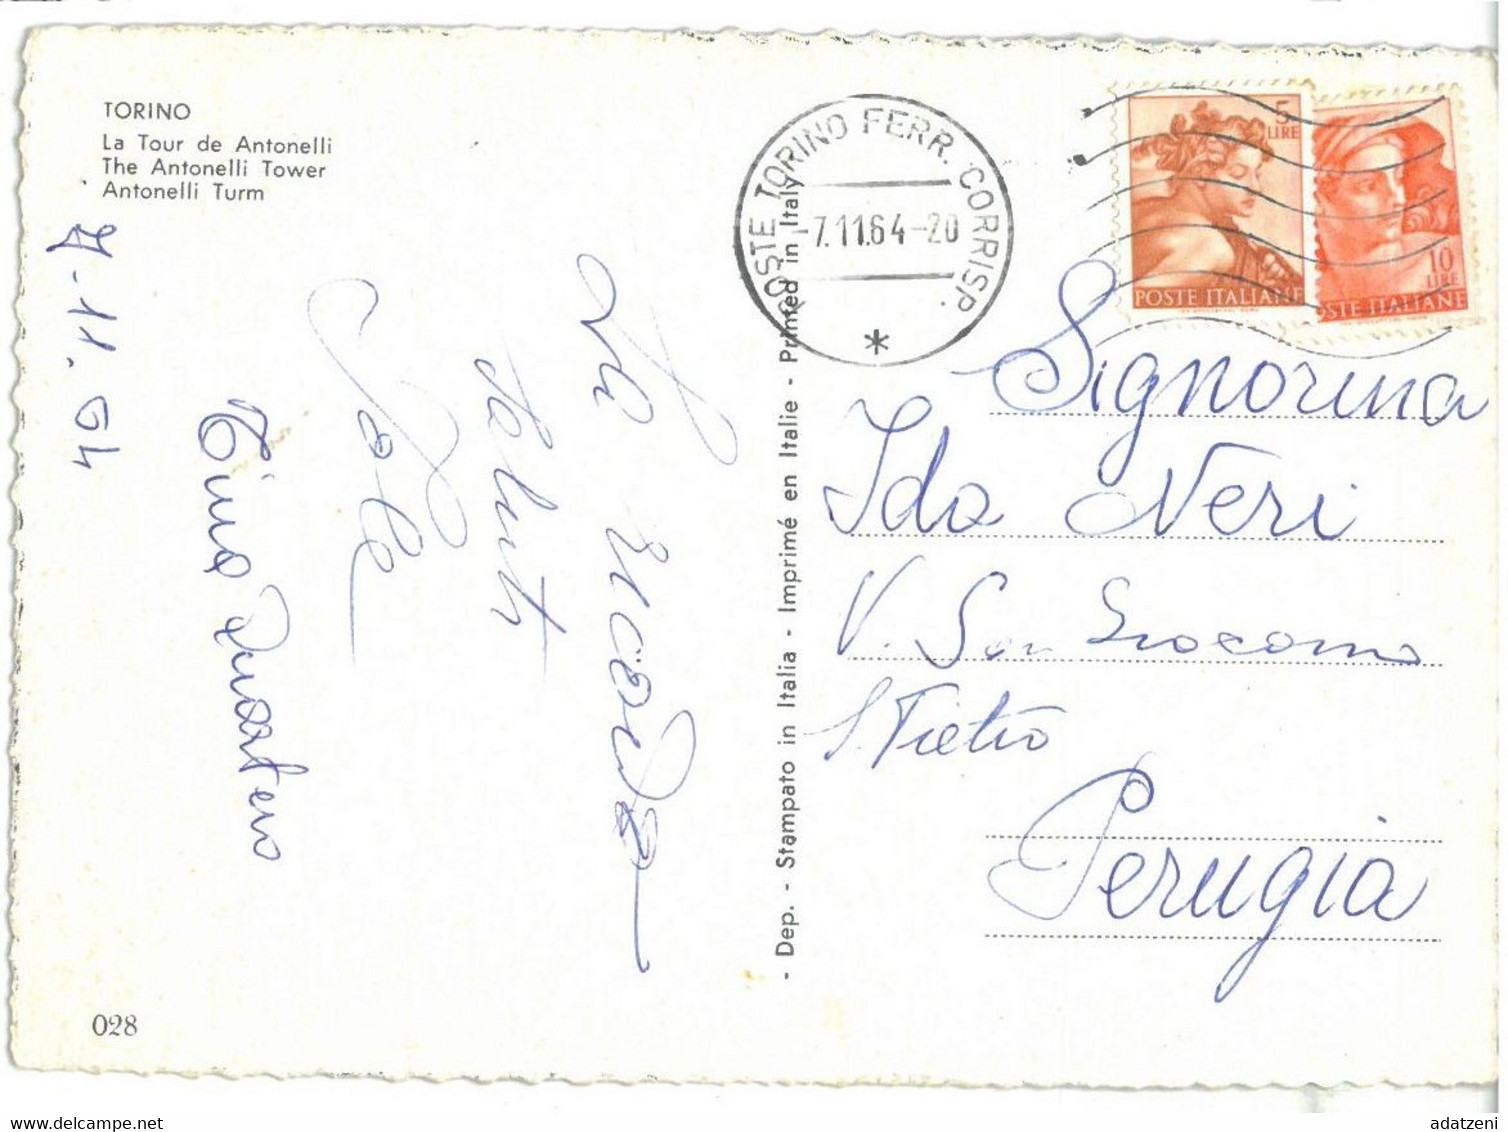 TORINO
La Tour de Antonelli
The Antonelli Tower
Antonelli Turm
7-11.64
La ricorda
saluti
028
- Dep. - Stampato in Italia - Imprimé en Italie - Printed in Italy
POSTE TORINO FERR. CORRISP.
-7.11.64-20
*
5
LIRE
POSTE ITALIANE
10
LIRE
POSTE ITALIANE
Signorina
Ida Neri
V. San Giacomo
S. Pietro
Perugia
adatzeni